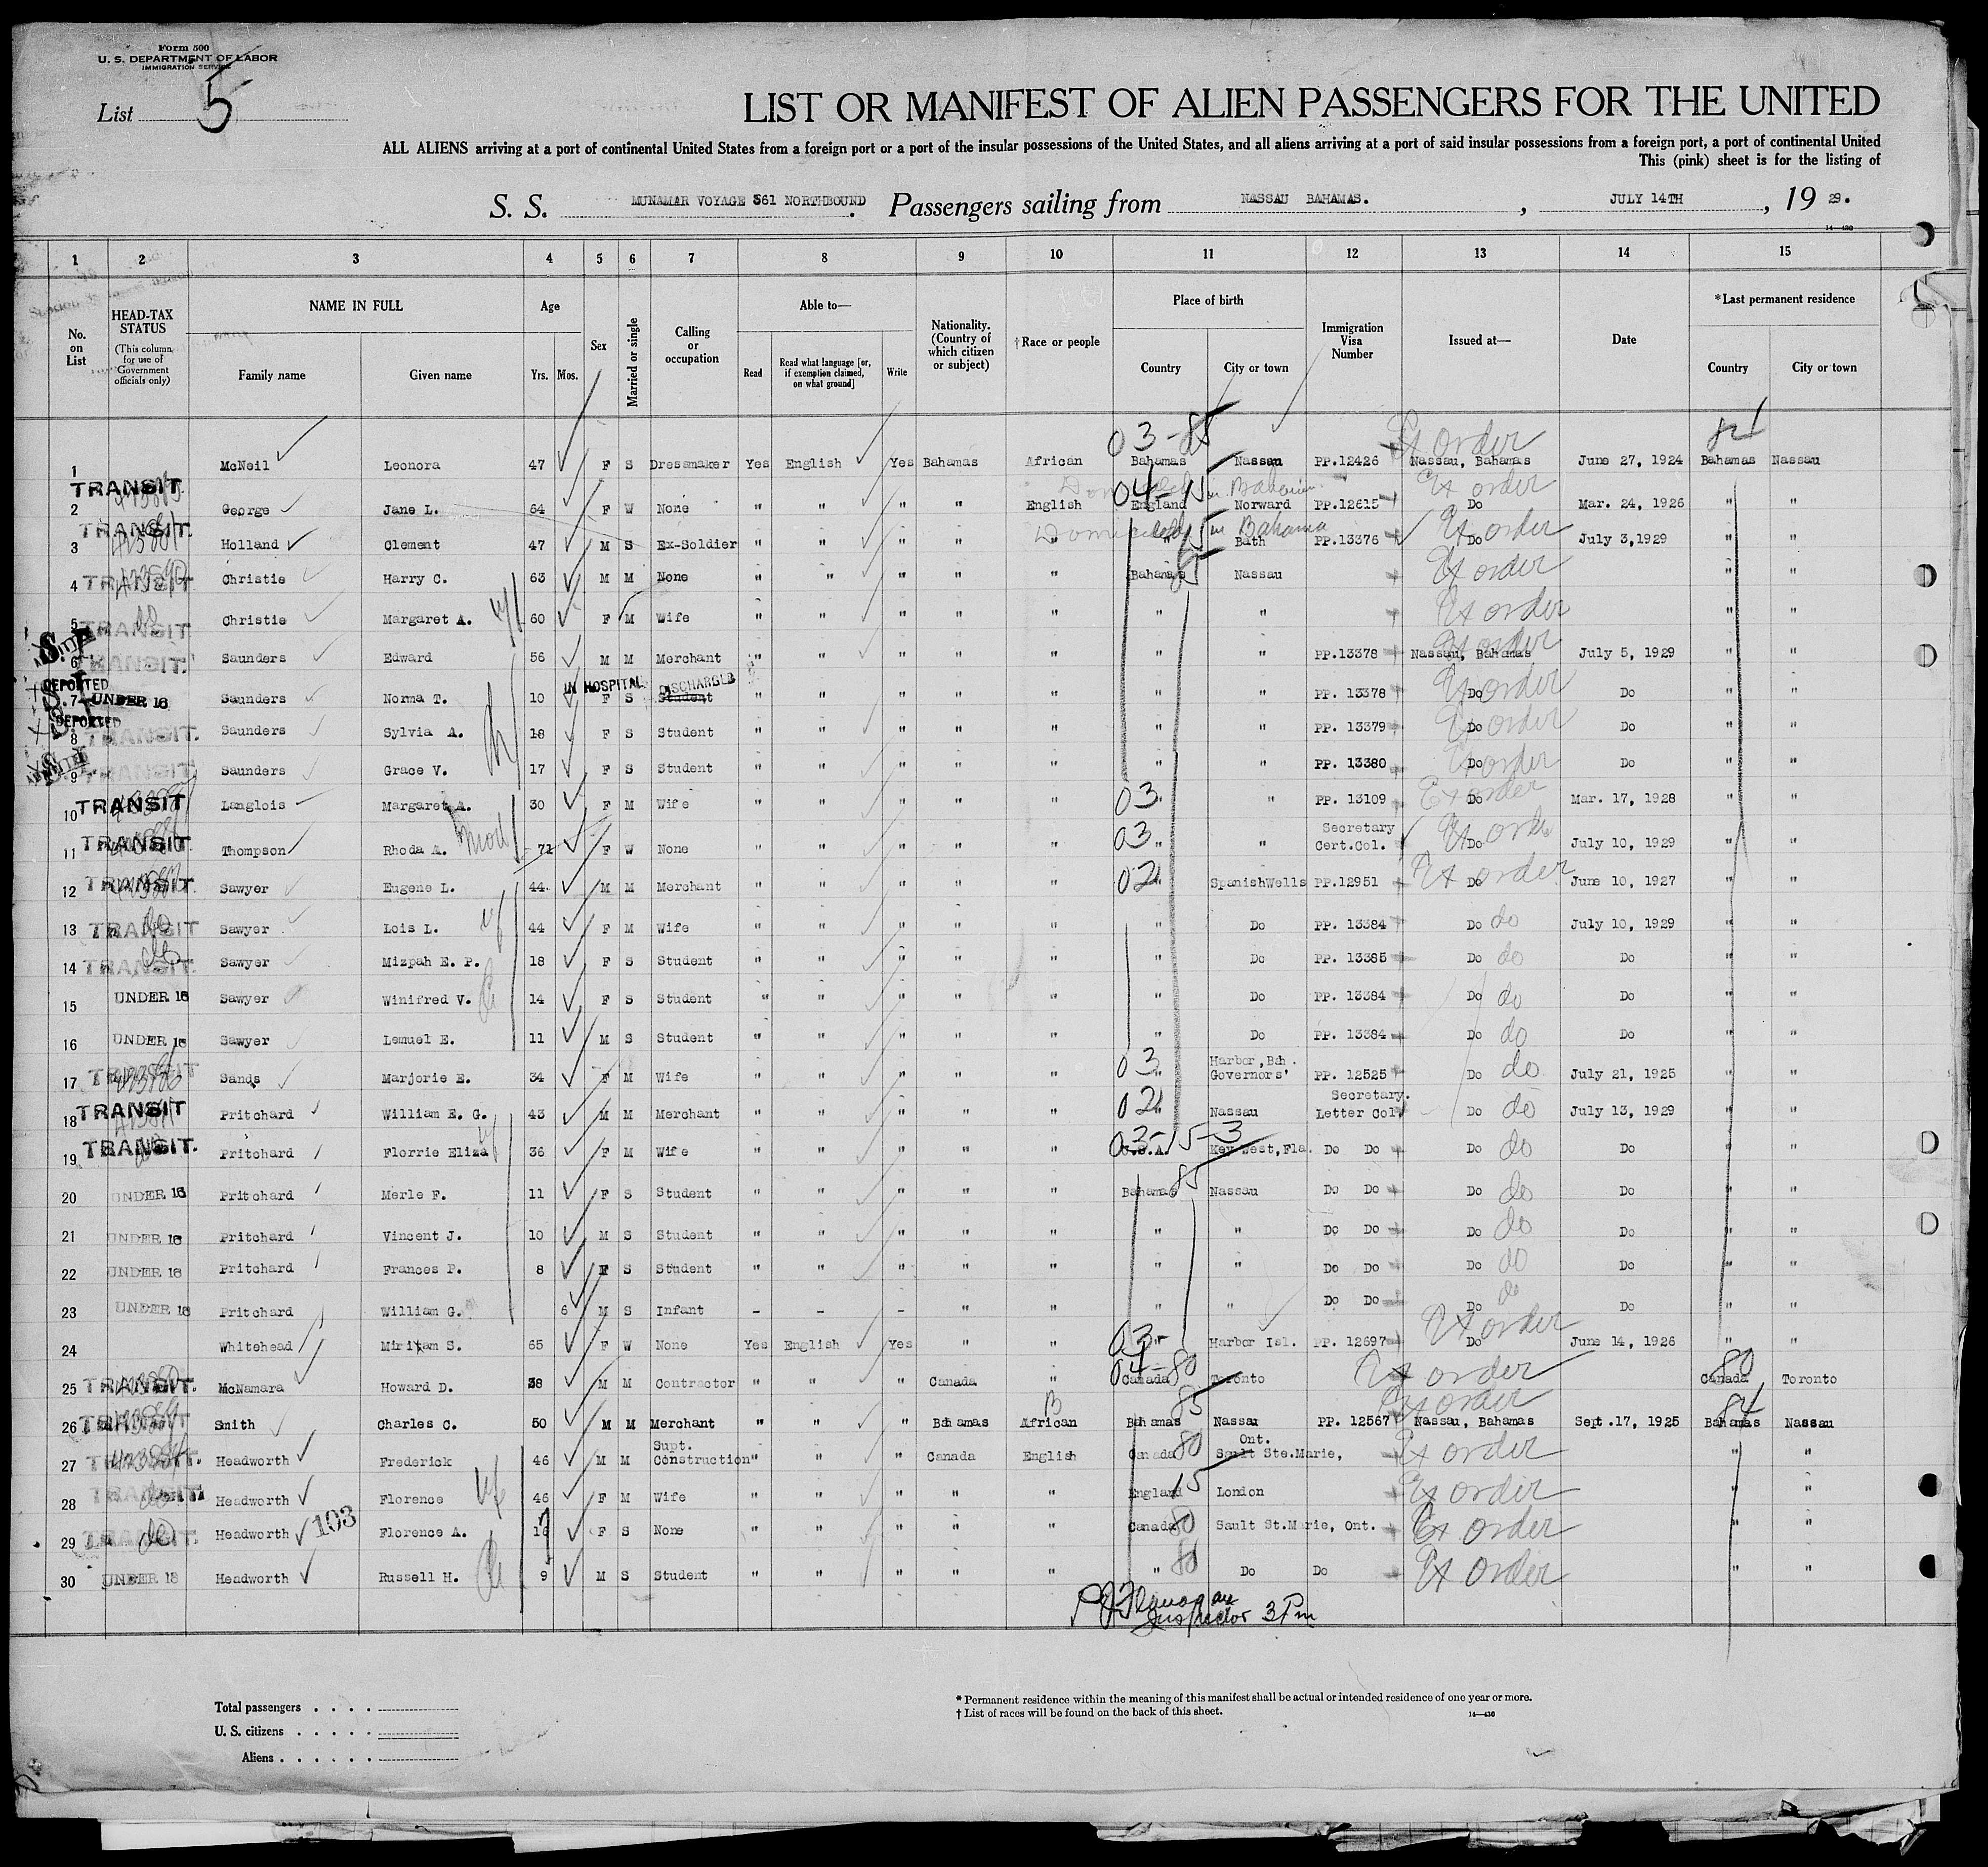 Form 500
U. S. DEPARTMENT OF LABOR
IMMIGRATION SERVICE
List 5
LIST OR MANIFEST OF ALIEN PASSENGERS FOR THE UNITED
ALL ALIENS arriving at a port of continental United States from a foreign port or a port of the insular possessions of the United States, and all aliens arriving at a port of said insular possessions from a foreign port, a port of continental United
This (pink) sheet is for the listing of
S. S. MUNAMAR VOYAGE 561 NORTHBOUND. Passengers sailing from NASSAU BAHAMAS. , JULY 14TH , 19 29.
14—430
1 2 3 4 5 6 7 8 9 10 11 12 13 14 15
No. on List
HEAD-TAX STATUS (This column for use of Government officials only)
NAME IN FULL
Family name Given name
Age
Yrs. Mos.
Sex
Married or single
Calling or occupation
Able to—
Read
Read what language [or, if exemption claimed, on what ground]
Write
Nationality. (Country of which citizen or subject)
†Race or people
Place of birth
Country City or town
Immigration Visa Number
Issued at—
Date
*Last permanent residence
Country City or town
03-85 Ex order 84
1 McNeil Leonora 47 F S Dressmaker Yes English Yes Bahamas African Bahamas Nassau PP.12426 Nassau, Bahamas June 27, 1924 Bahamas Nassau
TRANSIT 04-15 in Bahamas Ex order
2 George Jane L. 64 F W None " " " " English England Norward PP.12615 Do Mar. 24, 1926 " "
TRANSIT. Domiciled in Bahama Ex order
3 Holland Clement 47 M S Ex-Soldier " " " " " " Bath PP.13376 Do July 3,1929 " "
4 TRANSIT Christie Harry C. 63 M M None " " " " " Bahamas Nassau Ex order " "
5 TRANSIT do Christie Margaret A. wf 60 F M Wife " " " " " " " Ex order " "
6 TRANSIT. Saunders Edward 56 M M Merchant " " " " " " " PP.13378 Nassau, Bahamas Ex order July 5, 1929 " "
DEPORTED IN HOSPITAL DISCHARGED
7 UNDER 16 Saunders Norma T. 10 F S Student " " " " " " " PP. 13378 Do Ex order Do " "
DEPORTED
8 TRANSIT. Saunders Sylvia A. 18 F S Student " " " " " " " PP. 13379 Do Ex order Do " "
9 TRANSIT Saunders Grace V. 17 F S Student " " " " " " " PP. 13380 Do Ex order Do " "
10 TRANSIT Langlois Margaret A. 30 F M Wife " " " " " 03 " " PP. 13109 Do Ex order Mar. 17, 1928 " "
11 TRANSIT Thompson Rhoda A. 71 F W None " " " " " 03 " " Secretary Cert.Col. Do Ex order July 10, 1929 " "
12 TRANSIT. Sawyer Eugene L. 44 M M Merchant " " " " " 02 " SpanishWells PP.12951 Do Ex order June 10, 1927 " "
13 TRANSIT do Sawyer Lois L. wf 44 F M Wife " " " " " " Do PP. 13384 Do do July 10, 1929 " "
14 TRANSIT. do Sawyer Mizpah E. P. 18 F S Student " " " " " " Do PP. 13385 Do do Do " "
15 UNDER 16 Sawyer Winifred V. 14 F S Student " " " " " " Do PP. 13384 Do do Do " "
16 UNDER 16 Sawyer Lemuel E. 11 M S Student " " " " " " Do PP. 13384 Do do Do " "
17 TRANSIT Sands Marjorie E. 34 F M Wife " " " " " 03 " Governors' Harbor, Bah. PP. 12525 Do do July 21, 1925 " "
18 TRANSIT Pritchard William E. G. 43 M M Merchant " " " " " 02 " Nassau Secretary. Letter Col Do do July 13, 1929 " "
19 TRANSIT. Pritchard Florrie Eliza wf 36 F M Wife " " " " " 03-15-3 U.S.A. Key West, Fla. Do Do Do do Do " "
20 UNDER 16 Pritchard Merle F. 11 F S Student " " " " " Bahamas 85 Nassau Do Do Do do Do " "
21 UNDER 16 Pritchard Vincent J. 10 M S Student " " " " " " " Do Do Do do Do " "
22 UNDER 16 Pritchard Frances P. 8 F S Student " " " " " " " Do Do Do do Do " "
23 UNDER 16 Pritchard William G. 6 M S Infant - - - " " " " Do Do Do do Do " "
24 Whitehead Miriam S. 65 F W None Yes English Yes " " 03- " Harbor Isl. PP. 12697 Do Ex order June 14, 1926 " "
25 TRANSIT. McNamara Howard D. 38 M M Contractor " " " Canada " 04-80 Canada Toronto Ex order 80 Canada Toronto
26 TRANSIT Smith Charles C. 50 M M Merchant " " " Bahamas B African Bahamas 85 Nassau PP. 12567 Nassau, Bahamas Ex order Sept.17, 1925 84 Bahamas Nassau
27 TRANSIT. Headworth Frederick 46 M M Supt. Construction " " " Canada English Canada 80 Sault Ste.Marie, Ont. Ex order " "
28 TRANSIT do Headworth Florence wf 46 F M Wife " " " " " England 15 London Ex order " "
29 TRANSIT. do Headworth 103 Florence A. 16 F S None " " " " " Canada 80 Sault St.Marie, Ont. Ex order " "
30 UNDER 16 Headworth Russell H. 9 M S Student " " " " " " 80 Do Do Ex order " "
Inspector 3 Pm
Total passengers
U. S. citizens
Aliens
* Permanent residence within the meaning of this manifest shall be actual or intended residence of one year or more.
† List of races will be found on the back of this sheet.
14—430